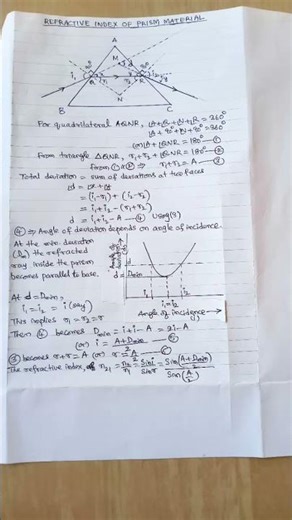 REFRACTIVE INDEX OF PRISM MATERIAL
A
M
90°
90°
i1
Q
r1
r2
R
i2
N
B
C
For quadrilateral AQNR, ∠A+∠Q+∠N+∠R = 360°
∠A+90°+∠N+90° = 360°
(or) ∠A+∠QNR = 180° — ①
From triangle ΔQNR, r1+r2+∠QNR = 180° — ②
From ① & ② ⇒ r1+r2 = A — ③
Total deviation = sum of deviations at two faces
= (i1-r1) + (i2-r2)
= i1+i2 - (r1+r2)
d = i1+i2 - A — ④ Using (3)
④ ⇒ Angle of deviation depends on angle of incidence.
At the min. deviation
(Dm) the refracted
ray inside the prism
becomes parallel to base.
d
Dmin
i1
i1=i2
i2
Angle of incidence →
At d = Dmin,
i1 = i2 = i (say)
This implies r1 = r2 = r
Then ④ becomes Dmin = i+i-A = 2i-A
(or) i = (A+Dmin)/2 — ⑤
③ becomes r+r = A (or) r = A/2 — ⑥
The refractive index, n21 = n2/n1 = Sin i/Sin r = Sin((A+Dmin)/2)/Sin(A/2)